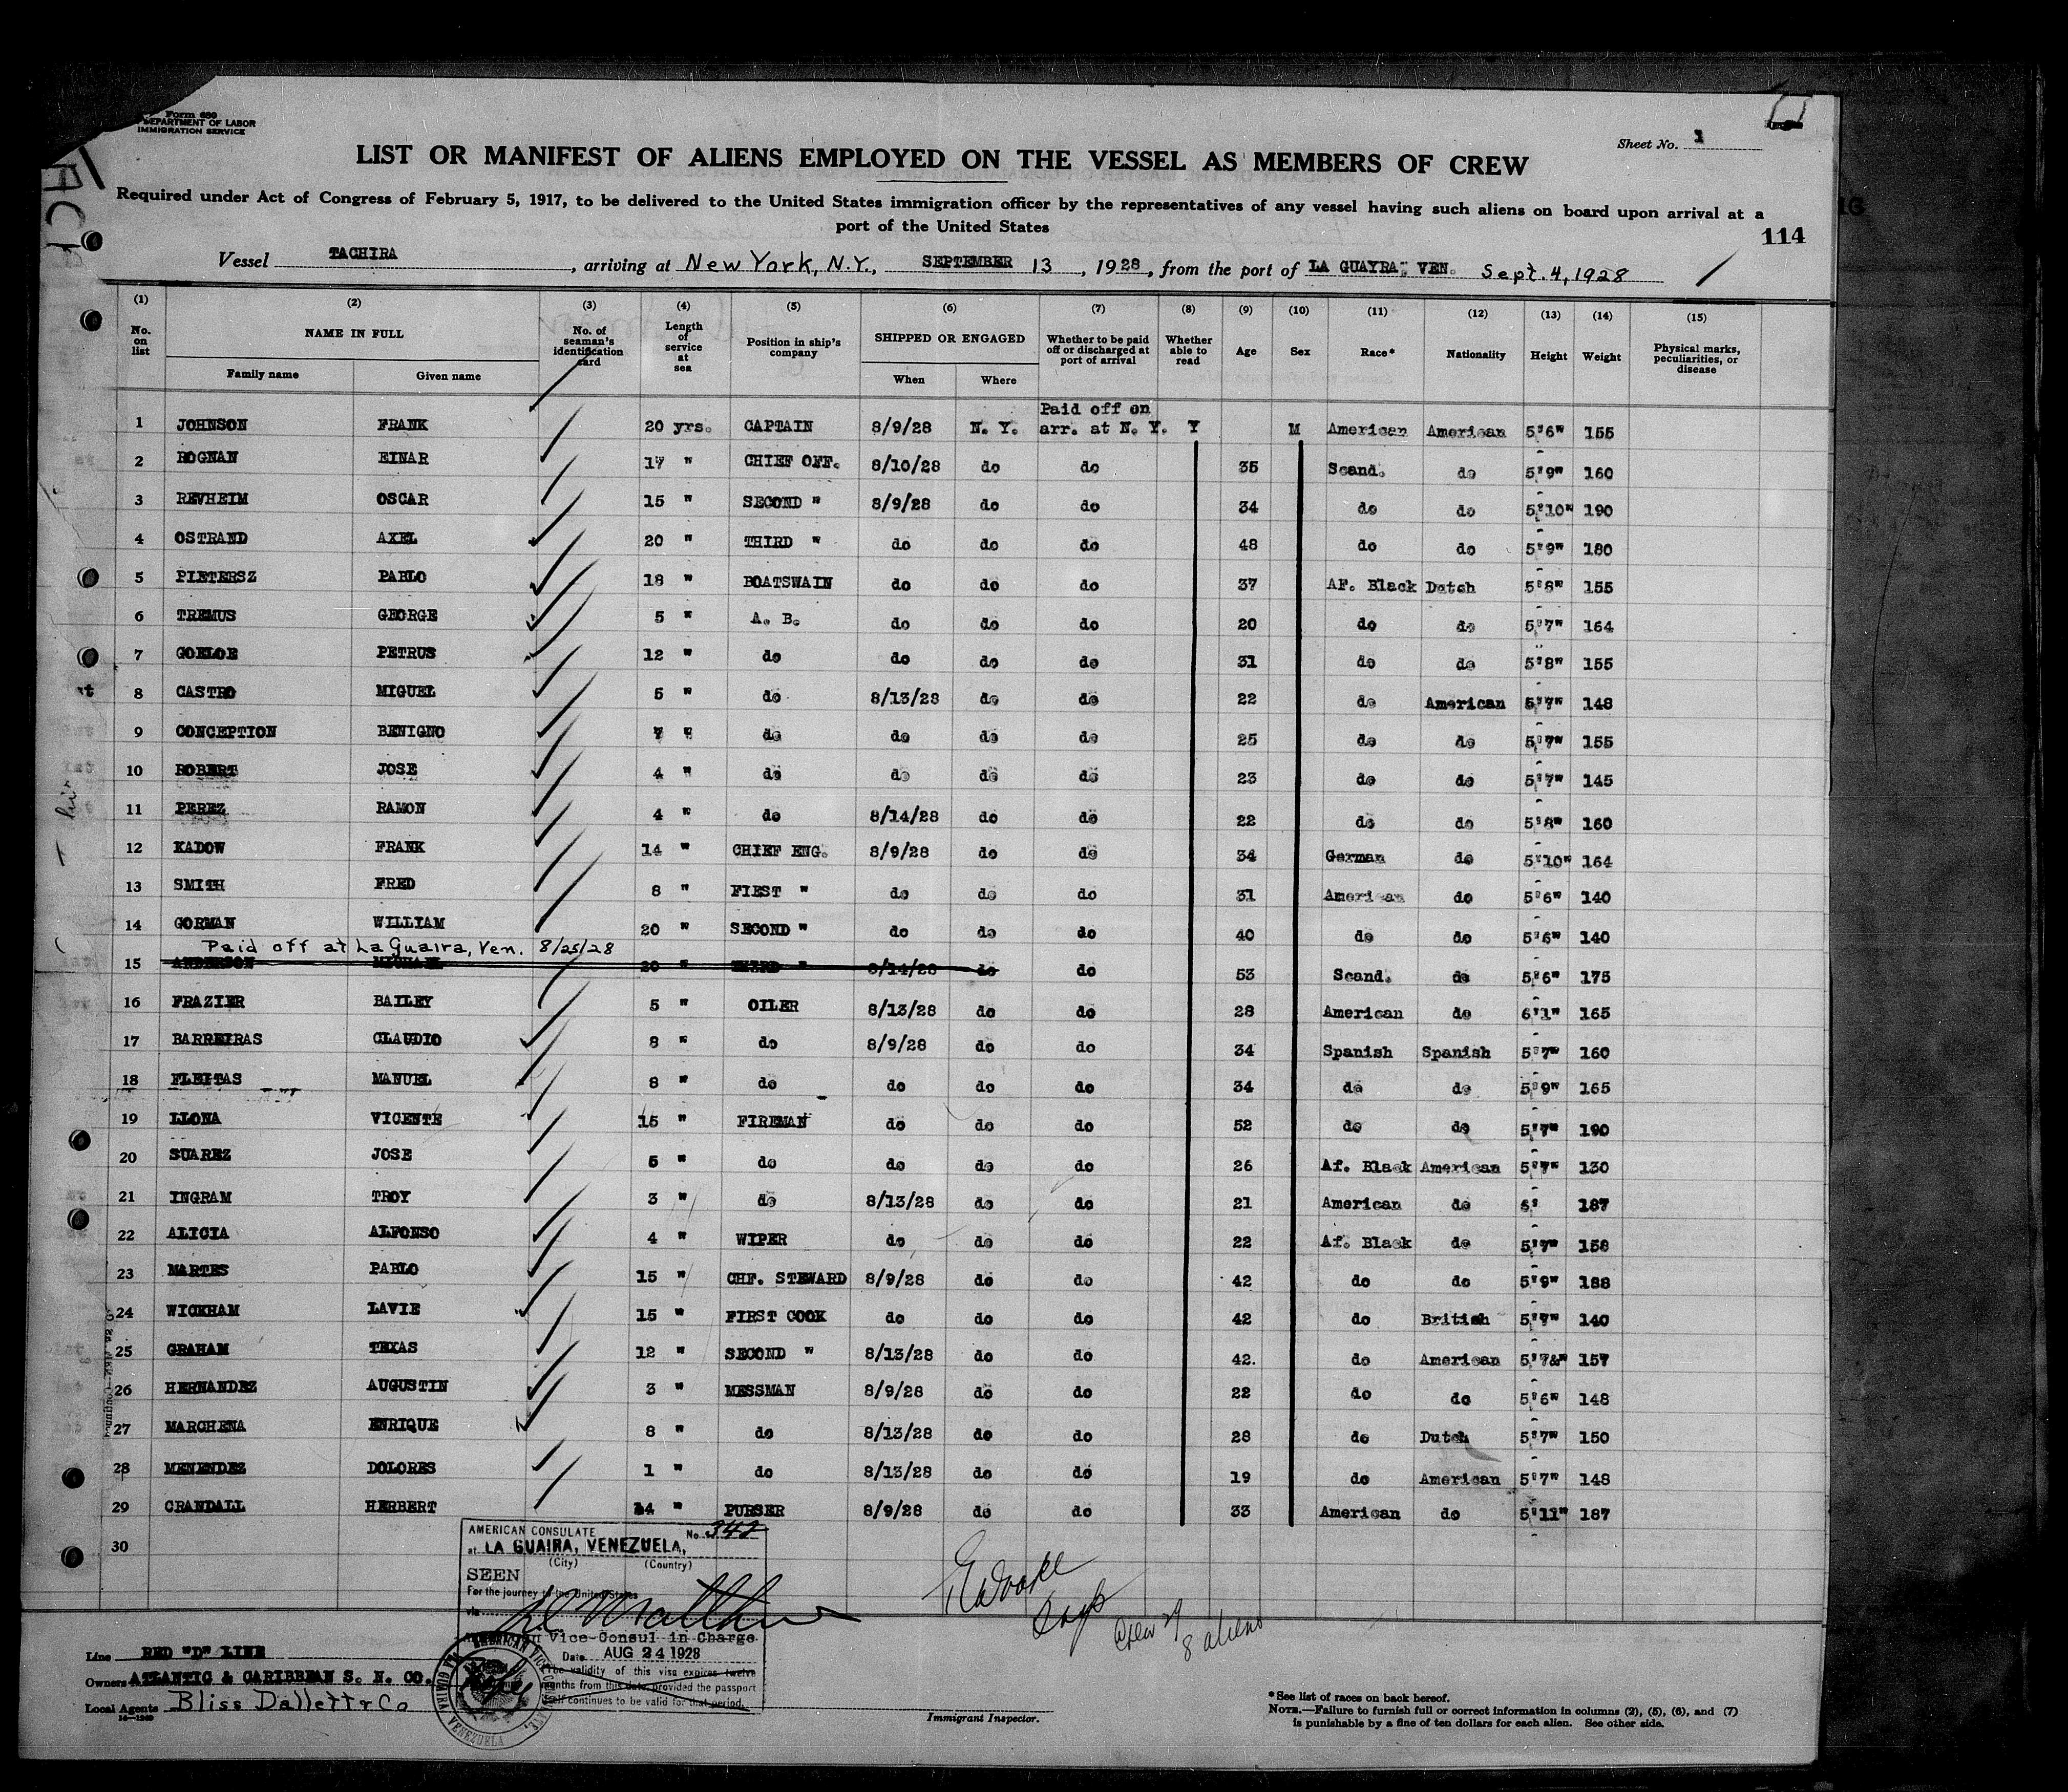 Form 680
DEPARTMENT OF LABOR
IMMIGRATION SERVICE
Sheet No. 1
LIST OR MANIFEST OF ALIENS EMPLOYED ON THE VESSEL AS MEMBERS OF CREW
Required under Act of Congress of February 5, 1917, to be delivered to the United States immigration officer by the representatives of any vessel having such aliens on board upon arrival at a
port of the United States
114
Vessel TACHIRA, arriving at New York, N.Y., SEPTEMBER 13, 1928, from the port of LA GUAYRA, VEN. Sept. 4, 1928
(1) (2) (3) (4) (5) (6) (7) (8) (9) (10) (11) (12) (13) (14) (15)
No. on list NAME IN FULL Family name Given name No. of seaman's identification card Length of service at sea Position in ship's company SHIPPED OR ENGAGED When Where Whether to be paid off or discharged at port of arrival Whether able to read Age Sex Race* Nationality Height Weight Physical marks, peculiarities, or disease
1 JOHNSON FRANK 20 yrs. CAPTAIN 8/9/28 N. Y. Paid off on arr. at N. Y. Y M American American 5'6" 155
2 ROGNAN EINAR 17 " CHIEF OFF. 8/10/28 do do 35 Scand. do 5'9" 160
3 REVHEIM OSCAR 15 " SECOND " 8/9/28 do do 34 do do 5'10" 190
4 OSTRAND AXEL 20 " THIRD " do do do 48 do do 5'9" 180
5 PIETERSZ PABLO 18 " BOATSWAIN do do do 37 AF. Black Dutch 5'8" 155
6 TREMUS GEORGE 5 " A. B. do do do 20 do do 5'7" 164
7 GOELOE PETRUS 12 " do do do do 31 do do 5'8" 155
8 CASTRO MIGUEL 5 " do 8/13/28 do do 22 do American 5'7" 148
9 CONCEPTION BENIGNO 7 " do do do do 25 do do 5'7" 155
10 ROBERT JOSE 4 " do do do do 23 do do 5'7" 145
11 PEREZ RAMON 4 " do 8/14/28 do do 22 do do 5'8" 160
12 KADOW FRANK 14 " CHIEF ENG. 8/9/28 do do 34 German do 5'10" 164
13 SMITH FRED 8 " FIEST " do do do 31 American do 5'6" 140
14 GORMAN WILLIAM 20 " SECOND " do do do 40 do do 5'6" 140
Paid off at La Guaira, Ven. 8/25/28
15 ANDERSON MICHAEL 20 " THIRD " 8/14/28 do do 53 Scand. do 5'6" 175
16 FRAZIER BAILEY 5 " OILER 8/13/28 do do 28 American do 6'1" 165
17 BARREIRAS CLAUDIO 8 " do 8/9/28 do do 34 Spanish Spanish 5'7" 160
18 FLEITAS MANUEL 8 " do do do do 34 do do 5'9" 165
19 LLONA VICENTE 15 " FIREMAN do do do 52 do do 5'7" 190
20 SUAREZ JOSE 5 " do do do do 26 Af. Black American 5'7" 130
21 INGRAM TROY 3 " do 8/13/28 do do 21 American do 6' 187
22 ALICIA ALFONSO 4 " WIPER do do do 22 Af. Black do 5'7" 158
23 MARTES PABLO 15 " CHF. STEWARD 8/9/28 do do 42 do do 5'9" 188
24 WICKHAM LAVIE 15 " FIRST COOK do do do 42 do British 5'7" 140
25 GRAHAM TEXAS 12 " SECOND " 8/13/28 do do 42. do American 5'7&" 157
26 HERNANDEZ AUGUSTIN 3 " MESSMAN 8/9/28 do do 22 do do 5'6" 148
27 MARCHENA ENRIQUE 8 " do 8/13/28 do do 28 do Dutch 5'7" 150
28 MENENDEZ DOLORES 1 " do 8/13/28 do do 19 do American 5'7" 148
29 CRANDALL HERBERT 14 " PURSER 8/9/28 do do 33 American do 5'11" 187
30
AMERICAN CONSULATE No. 342
at LA GUAIRA, VENEZUELA,
(City) (Country)
SEEN
For the journey to the United States
via
American Vice-Consul in Charge
Date AUG 24 1928
The validity of this visa expires twelve
months from this date, provided the passport
itself continues to be valid for that period.
Crew 29
8 aliens
Line RED "D" LINE
Owners ATLANTIC & CARIBBEAN S. N. CO.
Local Agents Bliss Dallett & Co
Immigrant Inspector.
*See list of races on back hereof.
NOTE.—Failure to furnish full or correct information in columns (2), (5), (6), and (7)
is punishable by a fine of ten dollars for each alien. See other side.